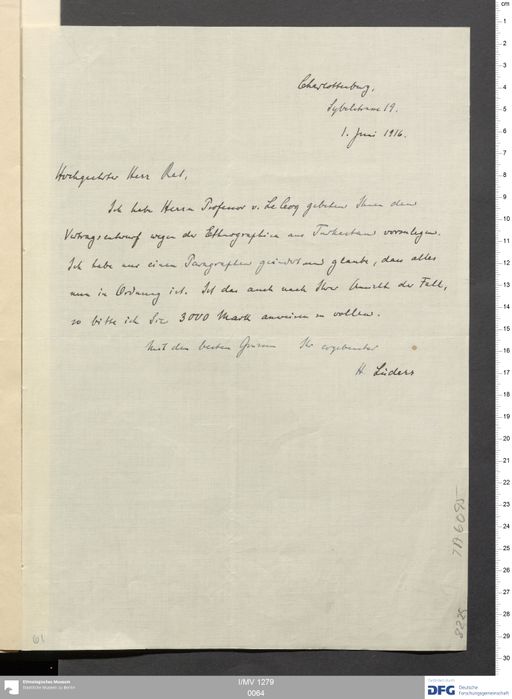 Charlottenburg,
Sybelstrasse 19.
1. Juni 1916.
Hochgeehrter Herr Rat,
Ich habe Herrn Professor v. Le Coq gebeten Ihnen den
Vertragsentwurf wegen der Ethnographica aus Turkestan vorzulegen.
Ich habe nur einen Paragraphen geändert und glaube, dass alles
nun in Ordnung ist. Ist das auch nach Ihrer Ansicht der Fall,
so bitte ich Sie 3000 Mark anweisen zu wollen.
Mit den besten Grüssen Ihr ergebenster
H. Lüders
7196095
8225
61
Ethnologisches Museum
Staatliche Museen zu Berlin
I/MV 1279
0064
DFG Deutsche
Forschungsgemeinschaft
cm
1
2
3
4
5
6
7
8
9
10
11
12
13
14
15
16
17
18
19
20
21
22
23
24
25
26
27
28
29
30